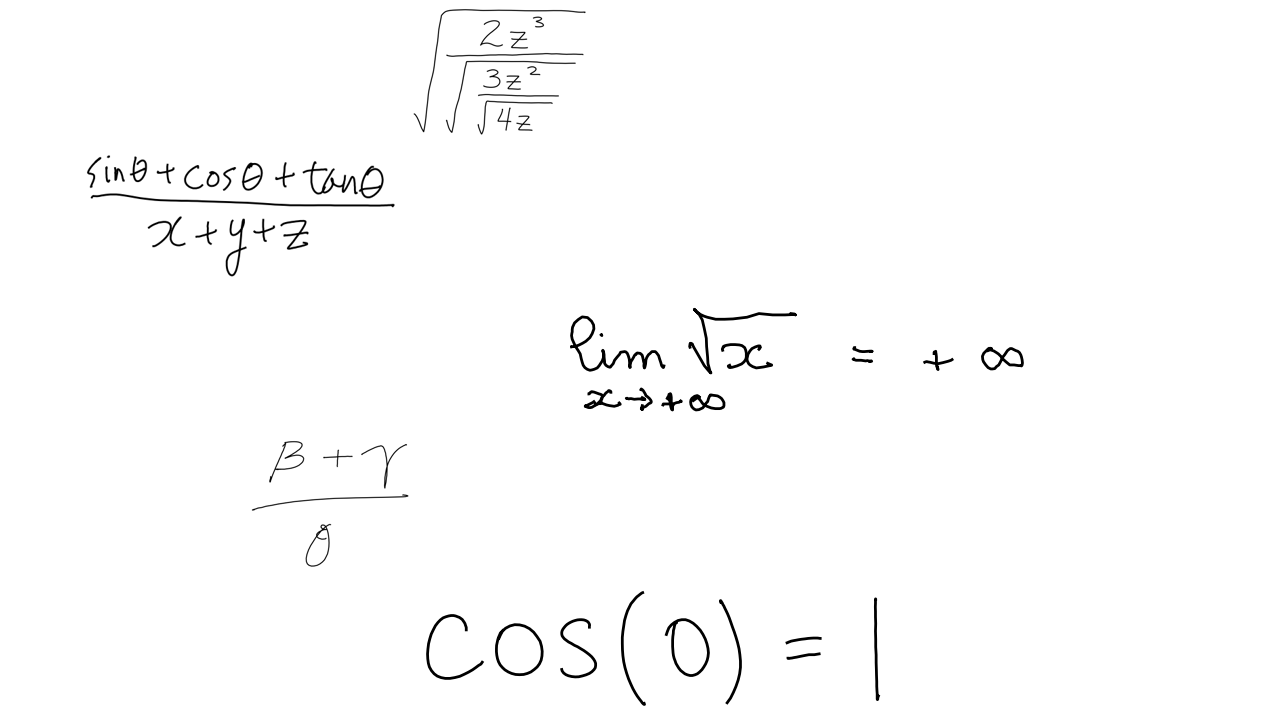 \sqrt{\frac{2z^3}{\sqrt{\frac{3z^2}{\sqrt{4z}}}}}
\frac{\sin\theta+\cos\theta+\tan\theta}{x+y+z}
\lim_{x\to+\infty}\sqrt{x} = +\infty
\frac{\beta+\gamma}{\theta}
\cos(0)=1